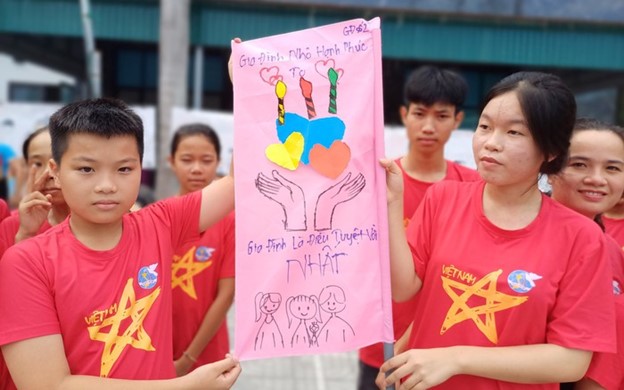 GĐ62
Gia Đình Nhỏ Hạnh Phúc
To
Gia Đình Là Điều Tuyệt Vời
NHẤT
VIỆT NAM
VIỆT NAM